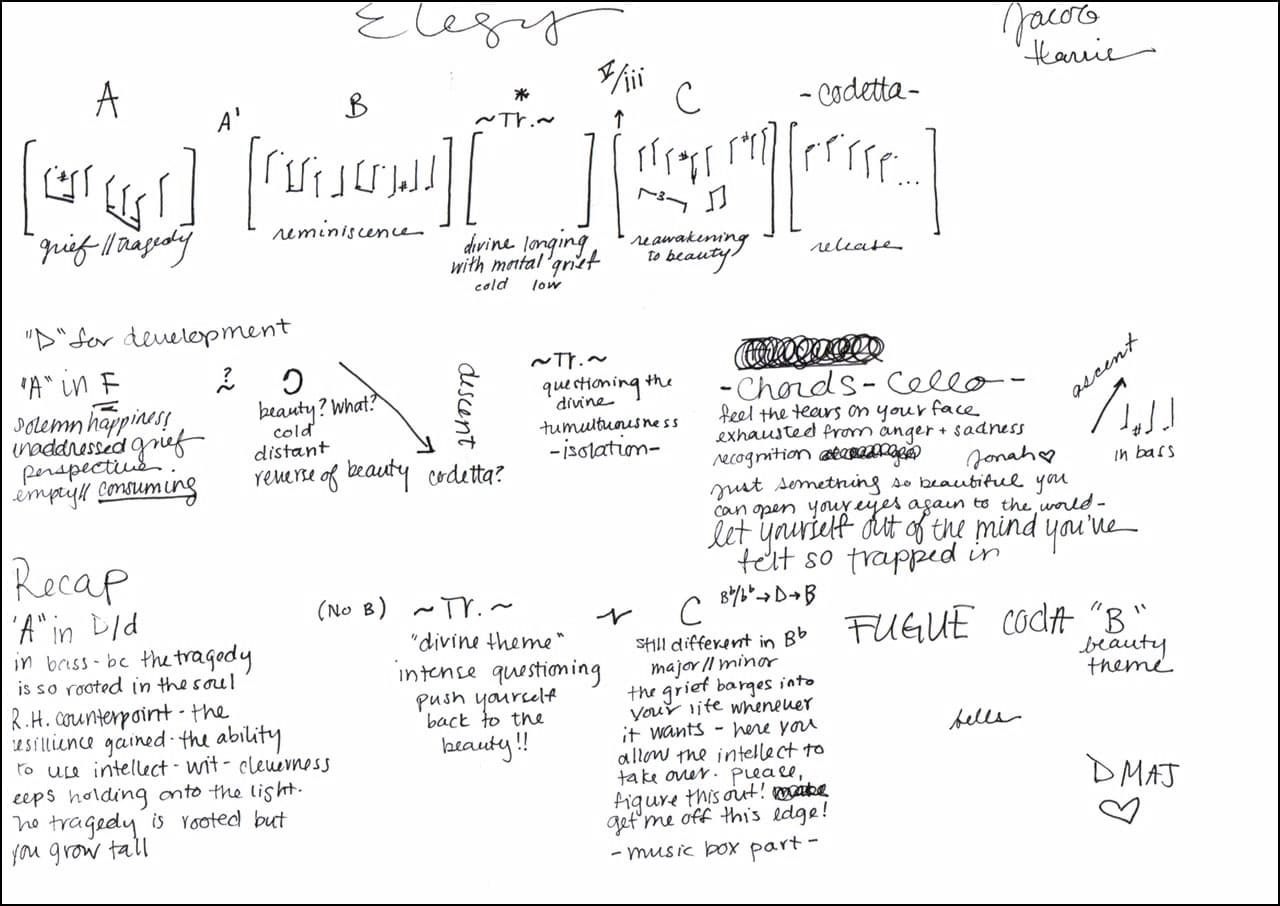 Elegy
Jacob
A
A'
B
*
~Tr.~
V/iii
C
-codetta-
grief // tragedy
reminiscence
divine longing
with mortal grief
cold low
3
reawakening
to beauty
release
...
"D" for development
"A" in F
solemn happiness
unaddressed grief
perspective.
empty// consuming
?
~
beauty? What?
cold
distant
reverse of beauty
descent
codetta?
~Tr.~
questioning the
divine
tumultuousness
-isolation-
-Chords-Cello-
feel the tears on your face
exhausted from anger + sadness
recognition
Jonah♡
just something so beautiful you
can open your eyes again to the world-
let yourself out of the mind you've
felt so trapped in
ascent
in bass
Recap
'A" in D/d
in bass - bc the tragedy
is so rooted in the soul
R.H. counterpoint - the
resillience gained - the ability
to use intellect - wit - cleverness
eeps holding onto the light.
he tragedy is rooted but
you grow tall
(No B)
~Tr.~
"divine theme"
intense questioning
push yourself
back to the
beauty!!
C
Bb/bb→D→B
still different in Bb
major//minor
the grief barges into
your life whenever
it wants - here you
allow the intellect to
take over. please,
figure this out!
get me off this edge!
-music box part-
FUGUE CODA "B"
beauty
theme
bells
DMAJ
♡